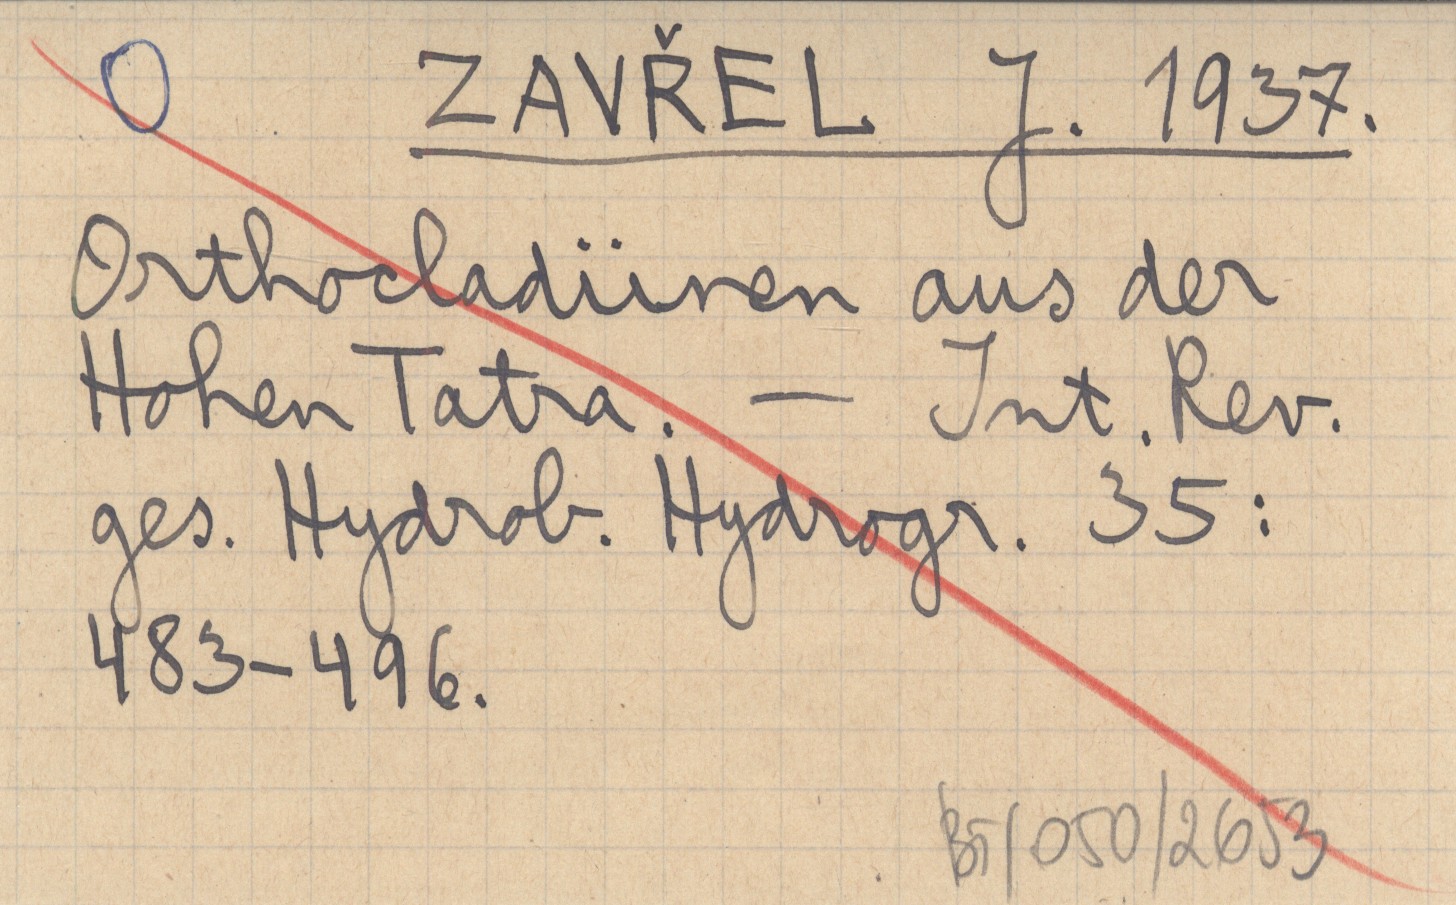 O ZAVŘEL J. 1937.
Orthocladiinen aus der
Hohen Tatra. — Int. Rev.
ges. Hydrob. Hydrogr. 35:
483-496.
BT/050/2653